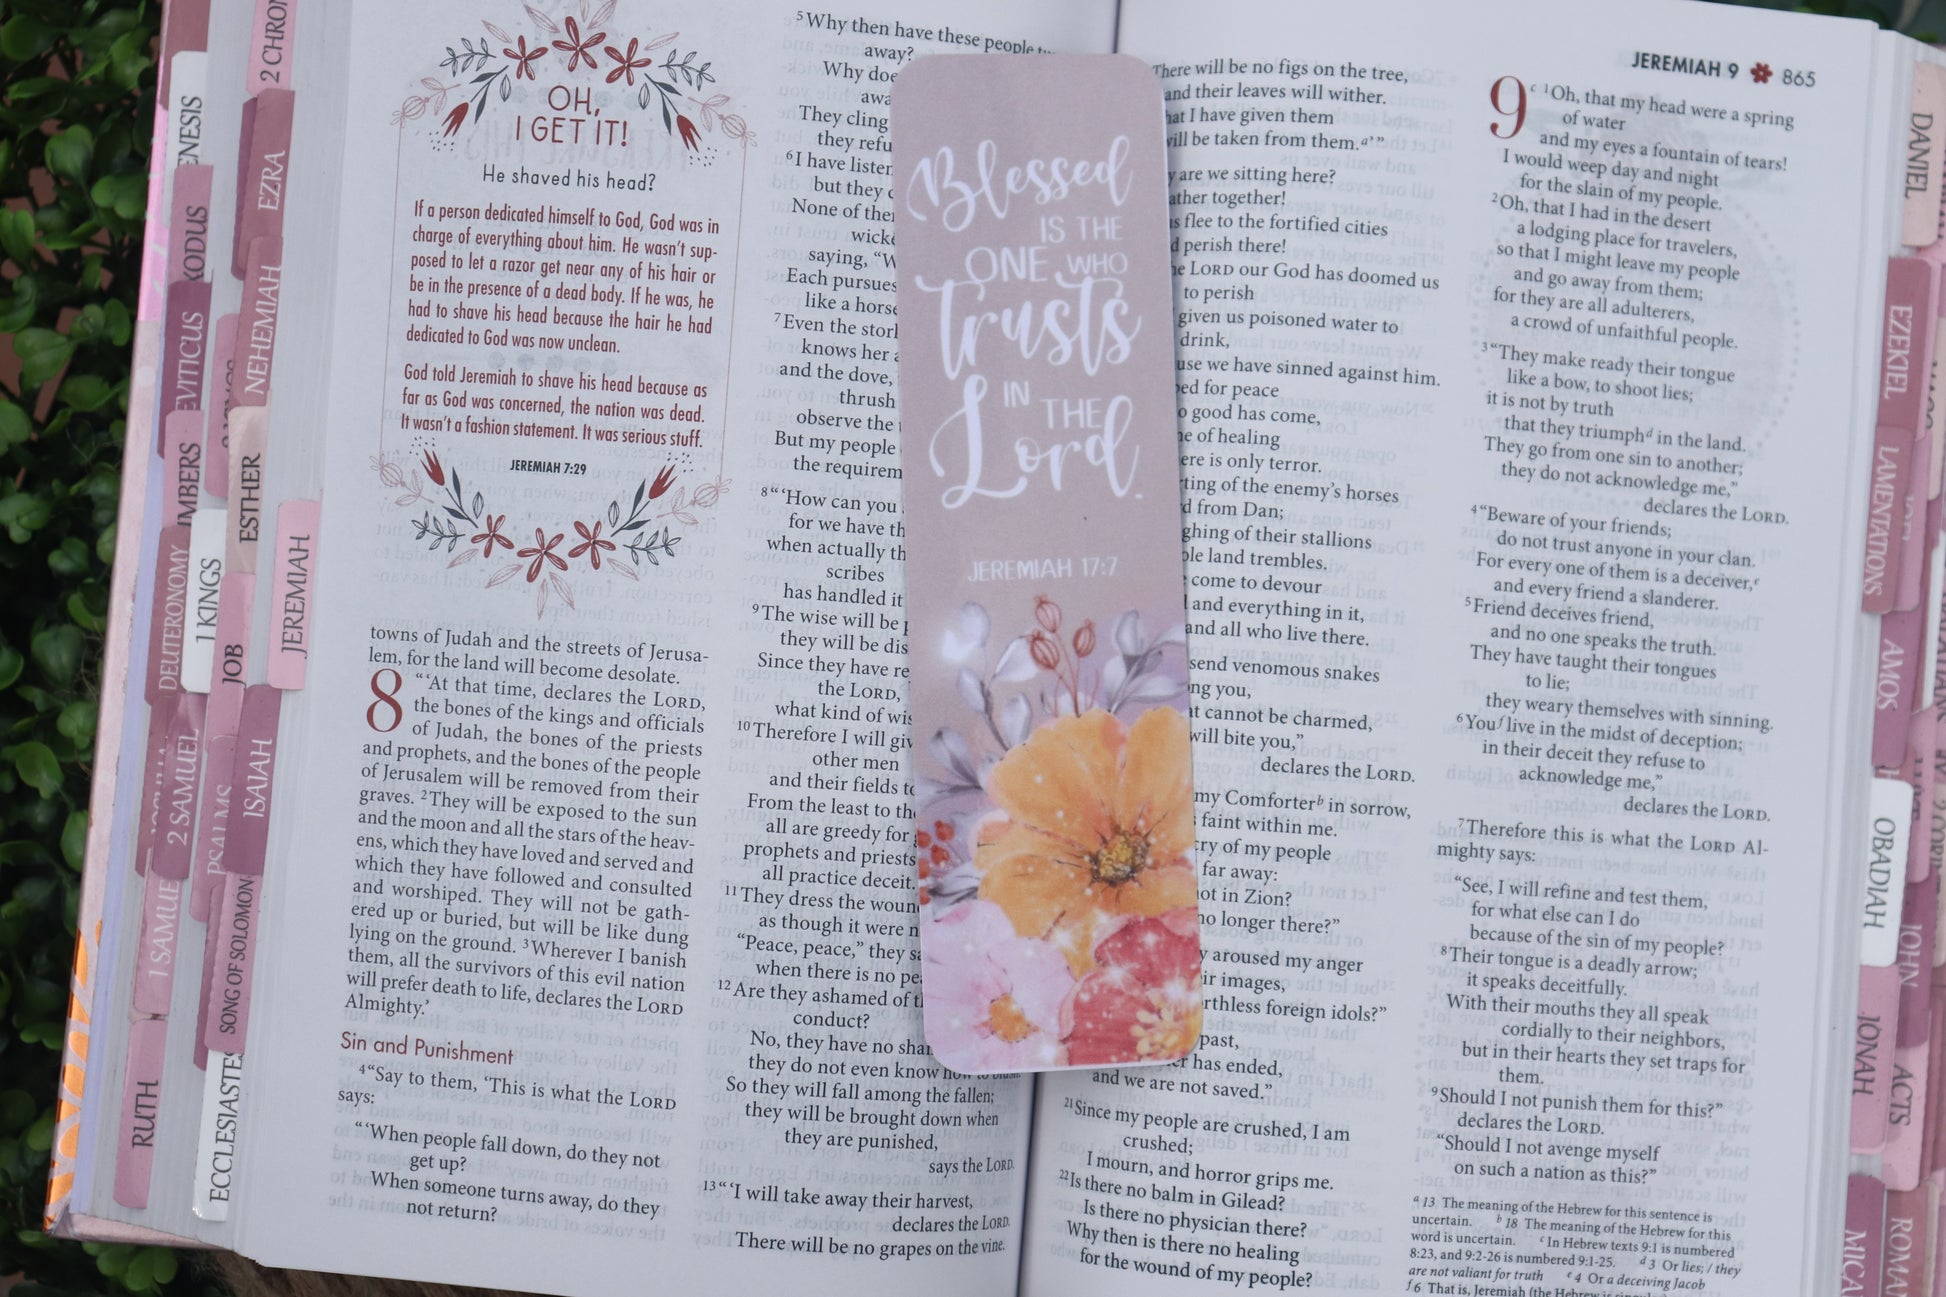 OH,
I GET IT!
He shaved his head?
If a person dedicated himself to God, God was in
charge of everything about him. He wasn't sup-
posed to let a razor get near any of his hair or
be in the presence of a dead body. If he was, he
had to shave his head because the hair he had
dedicated to God was now unclean.
God told Jeremiah to shave his head because as
far as God was concerned, the nation was dead.
It wasn't a fashion statement. It was serious stuff.
JEREMIAH 7:29
towns of Judah and the streets of Jerusa-
lem, for the land will become desolate.
8 "'At that time, declares the LORD,
the bones of the kings and officials
of Judah, the bones of the priests
and prophets, and the bones of the people
of Jerusalem will be removed from their
graves. 2They will be exposed to the sun
and the moon and all the stars of the heav-
ens, which they have loved and served and
which they have followed and consulted
and worshiped. They will not be gath-
ered up or buried, but will be like dung
lying on the ground. 3Wherever I banish
them, all the survivors of this evil nation
will prefer death to life, declares the LORD
Almighty.'
Sin and Punishment
4"Say to them, 'This is what the LORD
says:
"'When people fall down, do they not
get up?
When someone turns away, do they
not return?
5Why then have these people
away?
Why
They cling
they
6I have
but they
None of
saying,
Each pursues
like a
7Even the
knows her
and the dove,
observe the
But my people
the
8"'How can you
for we have
when actually
scribes
has handled it
9The wise will be
they will be
Since they have
the LORD,
what kind of
10Therefore I will
other men
and their fields
From the least to
all are greedy for
prophets and priests
all practice deceit.
11They dress the
as though it were
"Peace, peace," they
when there is no
12Are they ashamed of
conduct?
No, they have no
they do not even know how to blush.
So they will fall among the fallen;
they will be brought down when
they are punished,
says the LORD.
13"'I will take away their harvest,
declares the LORD.
There will be no grapes on the vine.
Blessed
IS THE
ONE WHO
trusts
IN THE
Lord.
JEREMIAH 17:7
There will be no figs on the tree,
and their leaves will wither.
I have given them
will be taken from them.a'"
are we sitting here?
together!
flee to the fortified cities
perish there!
LORD our God has doomed us
to perish
given us poisoned water to
drink,
we have sinned against him.
for peace
good has come,
of healing
is only terror.
of the enemy's horses
from Dan;
of their stallions
land trembles.
come to devour
and everything in it,
and all who live there.
send venomous snakes
you,
cannot be charmed,
will bite you,"
declares the LORD.
my Comforterb in sorrow,
faint within me.
cry of my people
far away:
in Zion?
no longer there?"
aroused my anger
images,
foreign idols?"
past,
has ended,
and we are not saved."
21Since my people are crushed, I am
crushed;
I mourn, and horror grips me.
22Is there no balm in Gilead?
Is there no physician there?
Why then is there no healing
for the wound of my people?
JEREMIAH 9 865
9 c 1Oh, that my head were a spring
of water
and my eyes a fountain of tears!
I would weep day and night
for the slain of my people.
2Oh, that I had in the desert
a lodging place for travelers,
so that I might leave my people
and go away from them;
for they are all adulterers,
a crowd of unfaithful people.
3"They make ready their tongue
like a bow, to shoot lies;
it is not by truth
that they triumphd in the land.
They go from one sin to another;
they do not acknowledge me,"
declares the LORD.
4"Beware of your friends;
do not trust anyone in your clan.
For every one of them is a deceiver,e
and every friend a slanderer.
5Friend deceives friend,
and no one speaks the truth.
They have taught their tongues
to lie;
they weary themselves with sinning.
6Youf live in the midst of deception;
in their deceit they refuse to
acknowledge me,"
declares the LORD.
7Therefore this is what the LORD Al-
mighty says:
"See, I will refine and test them,
for what else can I do
because of the sin of my people?
8Their tongue is a deadly arrow;
it speaks deceitfully.
With their mouths they all speak
cordially to their neighbors,
but in their hearts they set traps for
them.
9Should I not punish them for this?"
declares the LORD.
"Should I not avenge myself
on such a nation as this?"
a 13 The meaning of the Hebrew for this sentence is
uncertain. b 18 The meaning of the Hebrew for this
word is uncertain. c In Hebrew texts 9:1 is numbered
8:23, and 9:2-26 is numbered 9:1-25. d 3 Or lies; / they
are not valiant for truth e 4 Or a deceiving Jacob
f 6 That is, Jeremiah (the Hebrew is
2 CHRON
EZRA
NEHEMIAH
ESTHER
JEREMIAH
1 KINGS
JOB
ISAIAH
DEUTERONOMY
2 SAMUEL
PSALMS
1 SAMUE
SONG OF SOLOMON
RUTH
ECCLESIASTES
DANIEL
EZEKIEL
LAMENTATIONS
AMOS
OBADIAH
JOHN
JONAH
ACTS
MICA
ROMA